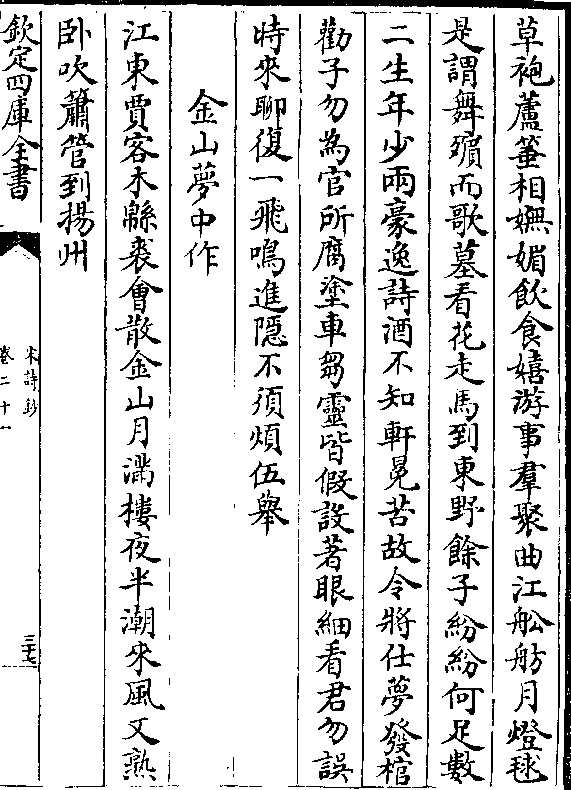 草袍蘆箠相嫵媚飲食嬉游事羣聚曲江舩舫月燈毬
是謂舞殯而歌墓看花走馬到東野餘子紛紛何足數
二生年少兩豪逸詩酒不知軒冕苦故令將仕夢發棺
勸子勿為官所腐塗車芻靈皆假設著眼細看君勿誤
時來聊復一飛鳴進隱不須煩伍舉
金山夢中作
江東賈客木緜裘㑹散金山月滿樓夜半潮來風又熟
卧吹簫管到揚州
欽定四庫全書
宋詩鈔
卷二十一
三十七